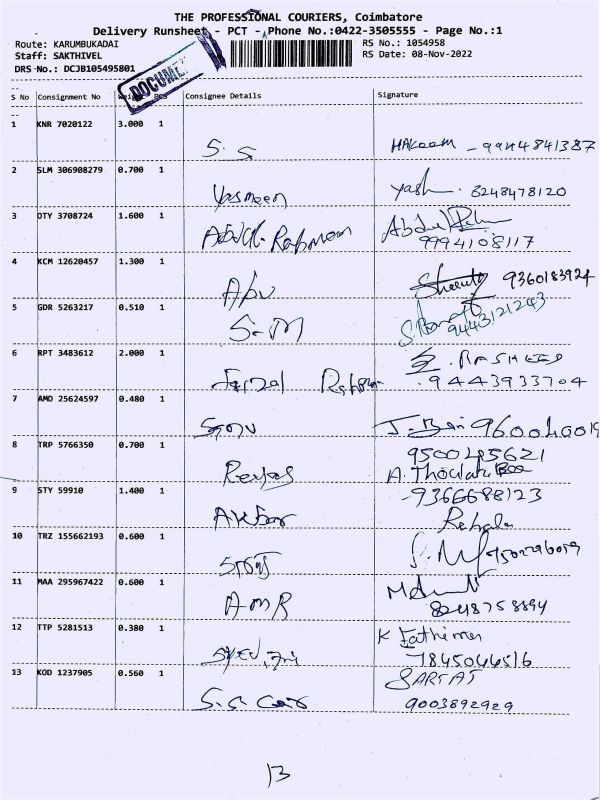 THE PROFESSIONAL COURIERS, Coimbatore
Delivery Runsheet - PCT - Phone No.:0422-3505555 - Page No.:1
Route: KARUMBUKADAI
RS No.: 1054958
Staff: SAKTHIVEL
RS Date: 08-Nov-2022
DRS No.: DCJB105495801
DOCUME
S No Consignment No PCS Consignee Details Signature
1 KNR 7020122 3.000 1
S. S HAKEEM - 9944841387
2 SLM 306908279 0.700 1
Yasmeen Yash. 8248478120
3 OTY 3708724 1.600 1
Abdul. Rahman Abdul
9994108117
4 KCM 12620457 1.300 1
Abu 9360183924
5 GDR 5263217 0.510 1
S-M 9443121243
6 RPT 3483612 2.000 1
RASHEED
Rahman 9443933704
7 AMD 25624597 0.480 1
960040019
8 TRP 5766350 0.700 1
9500485621
A.
9 STY 59910 1.400 1
9366688123
Akbar Rehala
10 TRZ 155662193 0.600 1
11 MAA 295967422 0.600 1
AMR 8248758894
12 TTP 5281513 0.380 1
K Fathima
7845044516
13 KOD 1237905 0.560 1
S.S. 9003892929
13